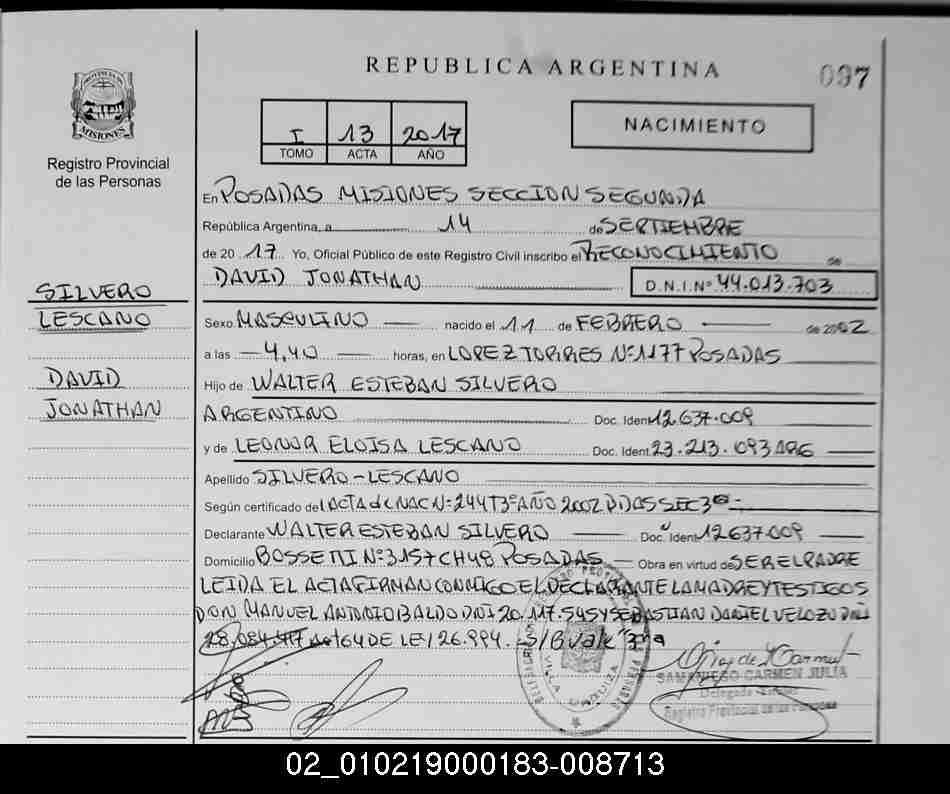 REPUBLICA ARGENTINA
097
PROVINCIA DE
MISIONES
Registro Provincial
de las Personas
I 13 2017
TOMO ACTA AÑO
NACIMIENTO
En POSADAS MISIONES SECCION SEGUNDA
República Argentina, a 14 de SEPTIEMBRE
de 20 17 Yo, Oficial Público de este Registro Civil inscribo el RECONOCIMIENTO de
DAVID JONATHAN D.N.I.Nº 44.013.703
SILVERO
LESCANO
DAVID
JONATHAN
Sexo MASCULINO nacido el 11 de FEBRERO de 2002
a las 4,40 horas, en LOPEZ TORRES Nº 1177 POSADAS
Hijo de WALTER ESTEBAN SILVERO
ARGENTINO Doc. Ident 12.637.009
y de LEONOR ELOISA LESCANO Doc. Ident. 23.213.093 ARG
Apellido SILVERO - LESCANO
Según certificado de ACTA de NAC Nº 244 T3º AÑO 2002 SEC 3ª
Declarante WALTER ESTEBAN SILVERO Doc. Ident 12637.009
Domicilio BOSSETTI Nº 3157 CH 48 POSADAS Obra en virtud de SER EL PADRE
LEIDA EL ACTA FIRMAN CONMIGO EL DECLARANTE LA MADRE Y TESTIGOS
DON MANUEL ANTONIO BALDO DNI 20.117.545 Y SEBASTIAN DANIEL VELOZO DNI
28.084. 64 DE LEI 26.994. S/B Vale
SAMANIEGO CARMEN JULIA
Delegada
Registro Provincial de las Personas
02_010219000183-008713